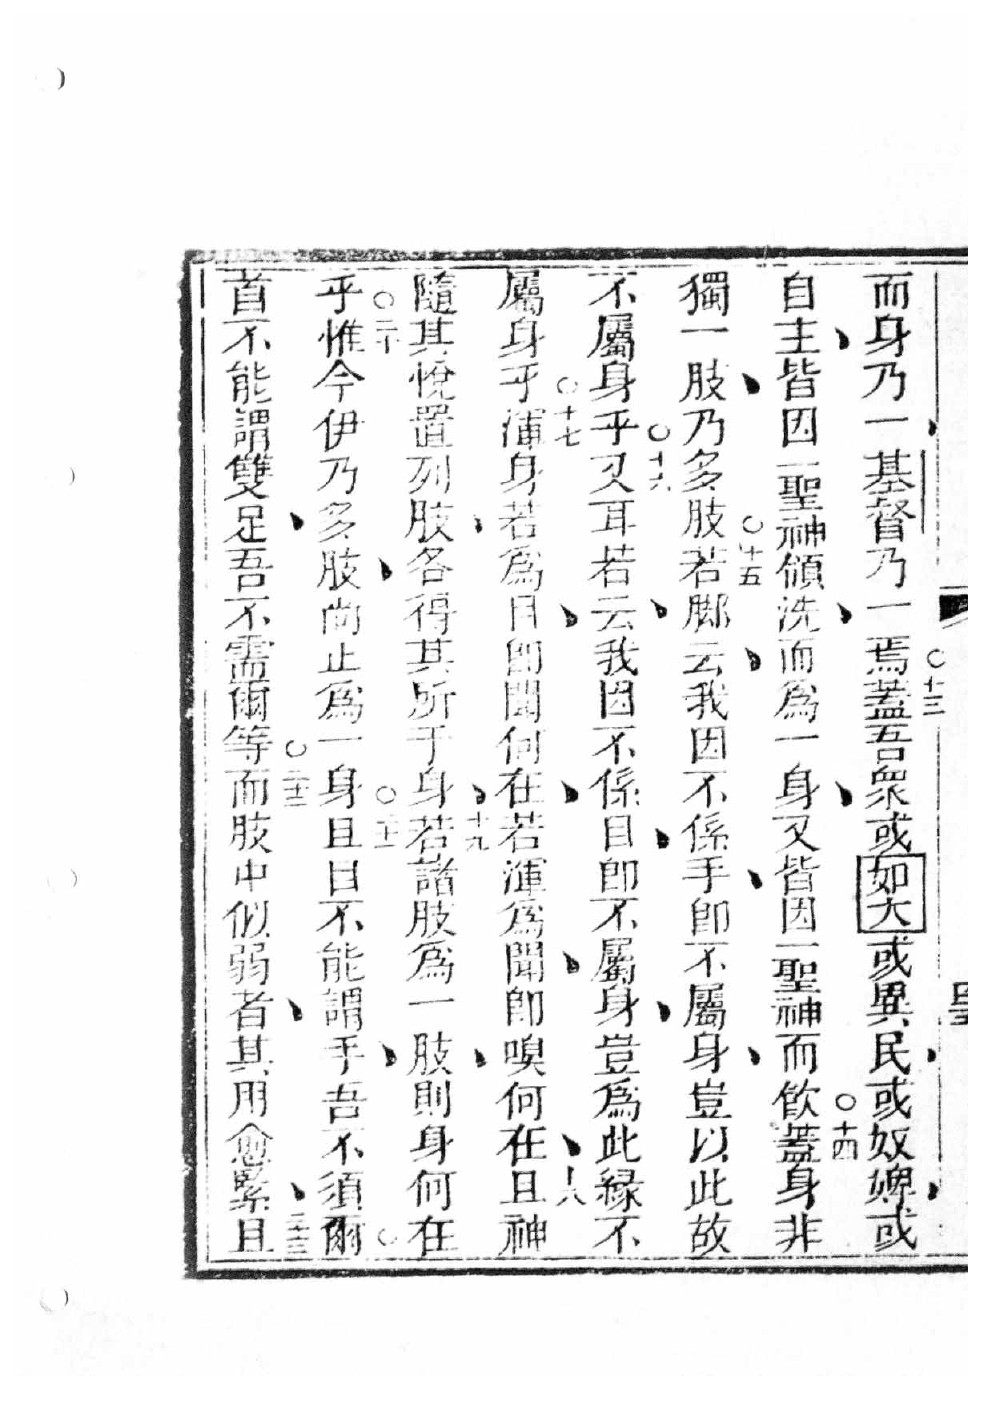 而身乃一基督乃一焉○十三蓋吾衆或如大或異民或奴婢或
自主皆因一聖神領洗而為一身又皆因一聖神而飲○十四蓋身非
獨一肢乃多肢○十五若脚云我因不係手卽不屬身豈以此故
不屬身乎○十六又耳若云我因不係目卽不屬身豈為此緣不
屬身乎○十七渾身若為目卽聞何在若渾為聞卽嗅何在十八且神
隨其悅置列肢各得其所于身十九若諸肢為一肢則身何在
○二十乎惟今伊乃多肢尚止為一身○二十一且目不能謂手吾不須爾
首不能謂雙足吾不需爾等○二十二而肢中似弱者其用愈緊二十三且